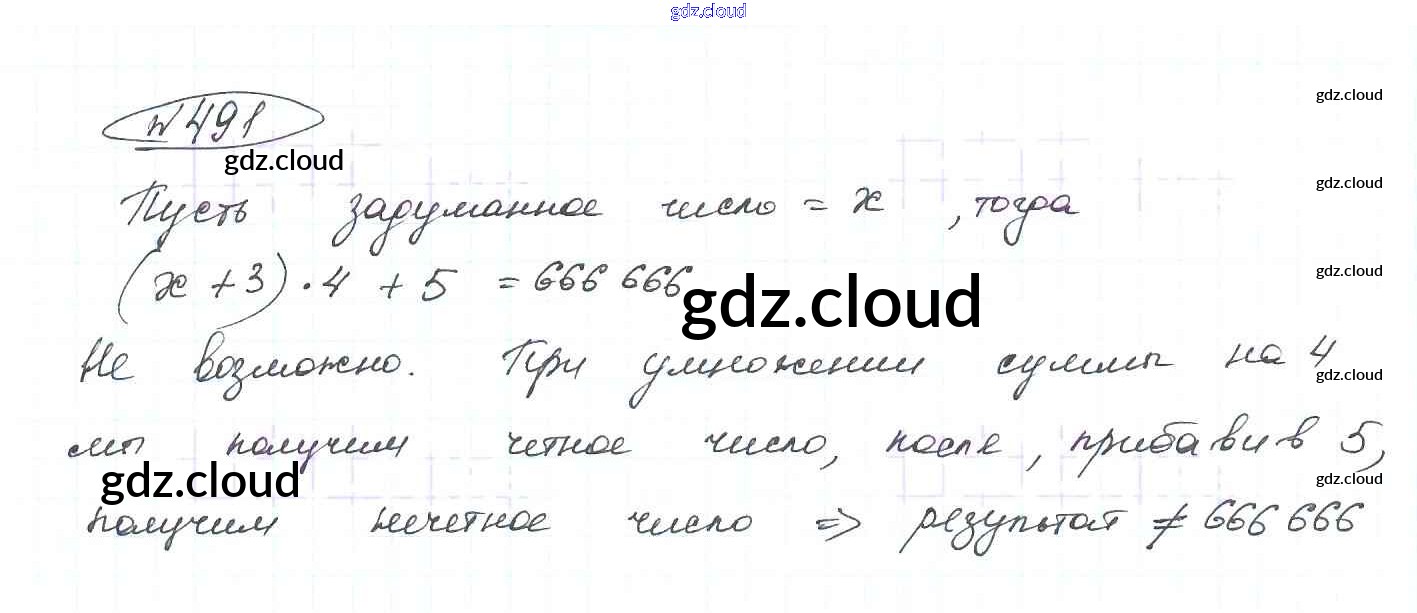 gdz.cloud
gdz.cloud
№ 491
gdz.cloud
gdz.cloud
Пусть задуманное число = x , тогда
(x + 3) · 4 + 5 = 666 666
gdz.cloud
gdz.cloud
Не возможно. При умножении суммы на 4
gdz.cloud
мы получим четное число, после , прибавив 5,
gdz.cloud
gdz.cloud
получим нечетное число => результат ≠ 666 666